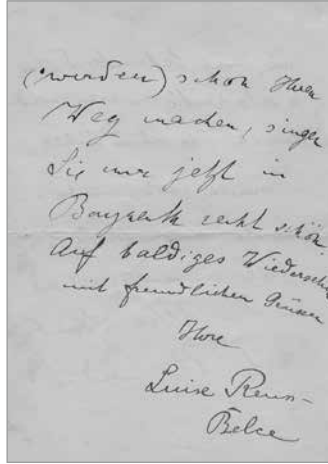 (werden) schon Ihren
Weg machen, singen
Sie nur jetzt in
Bayreuth recht schön
Auf baldiges Wiedersehn
mit freundlichen Grüssen
Ihre
Luise Reuss-
Belce